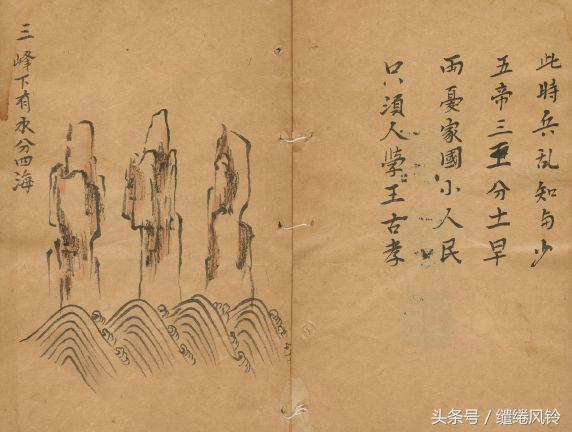 此時兵乱知与少
五帝三王分土早
憂家國小人民
只須人王古孝
三峰下有分四海
头条号 / 缱绻风铃